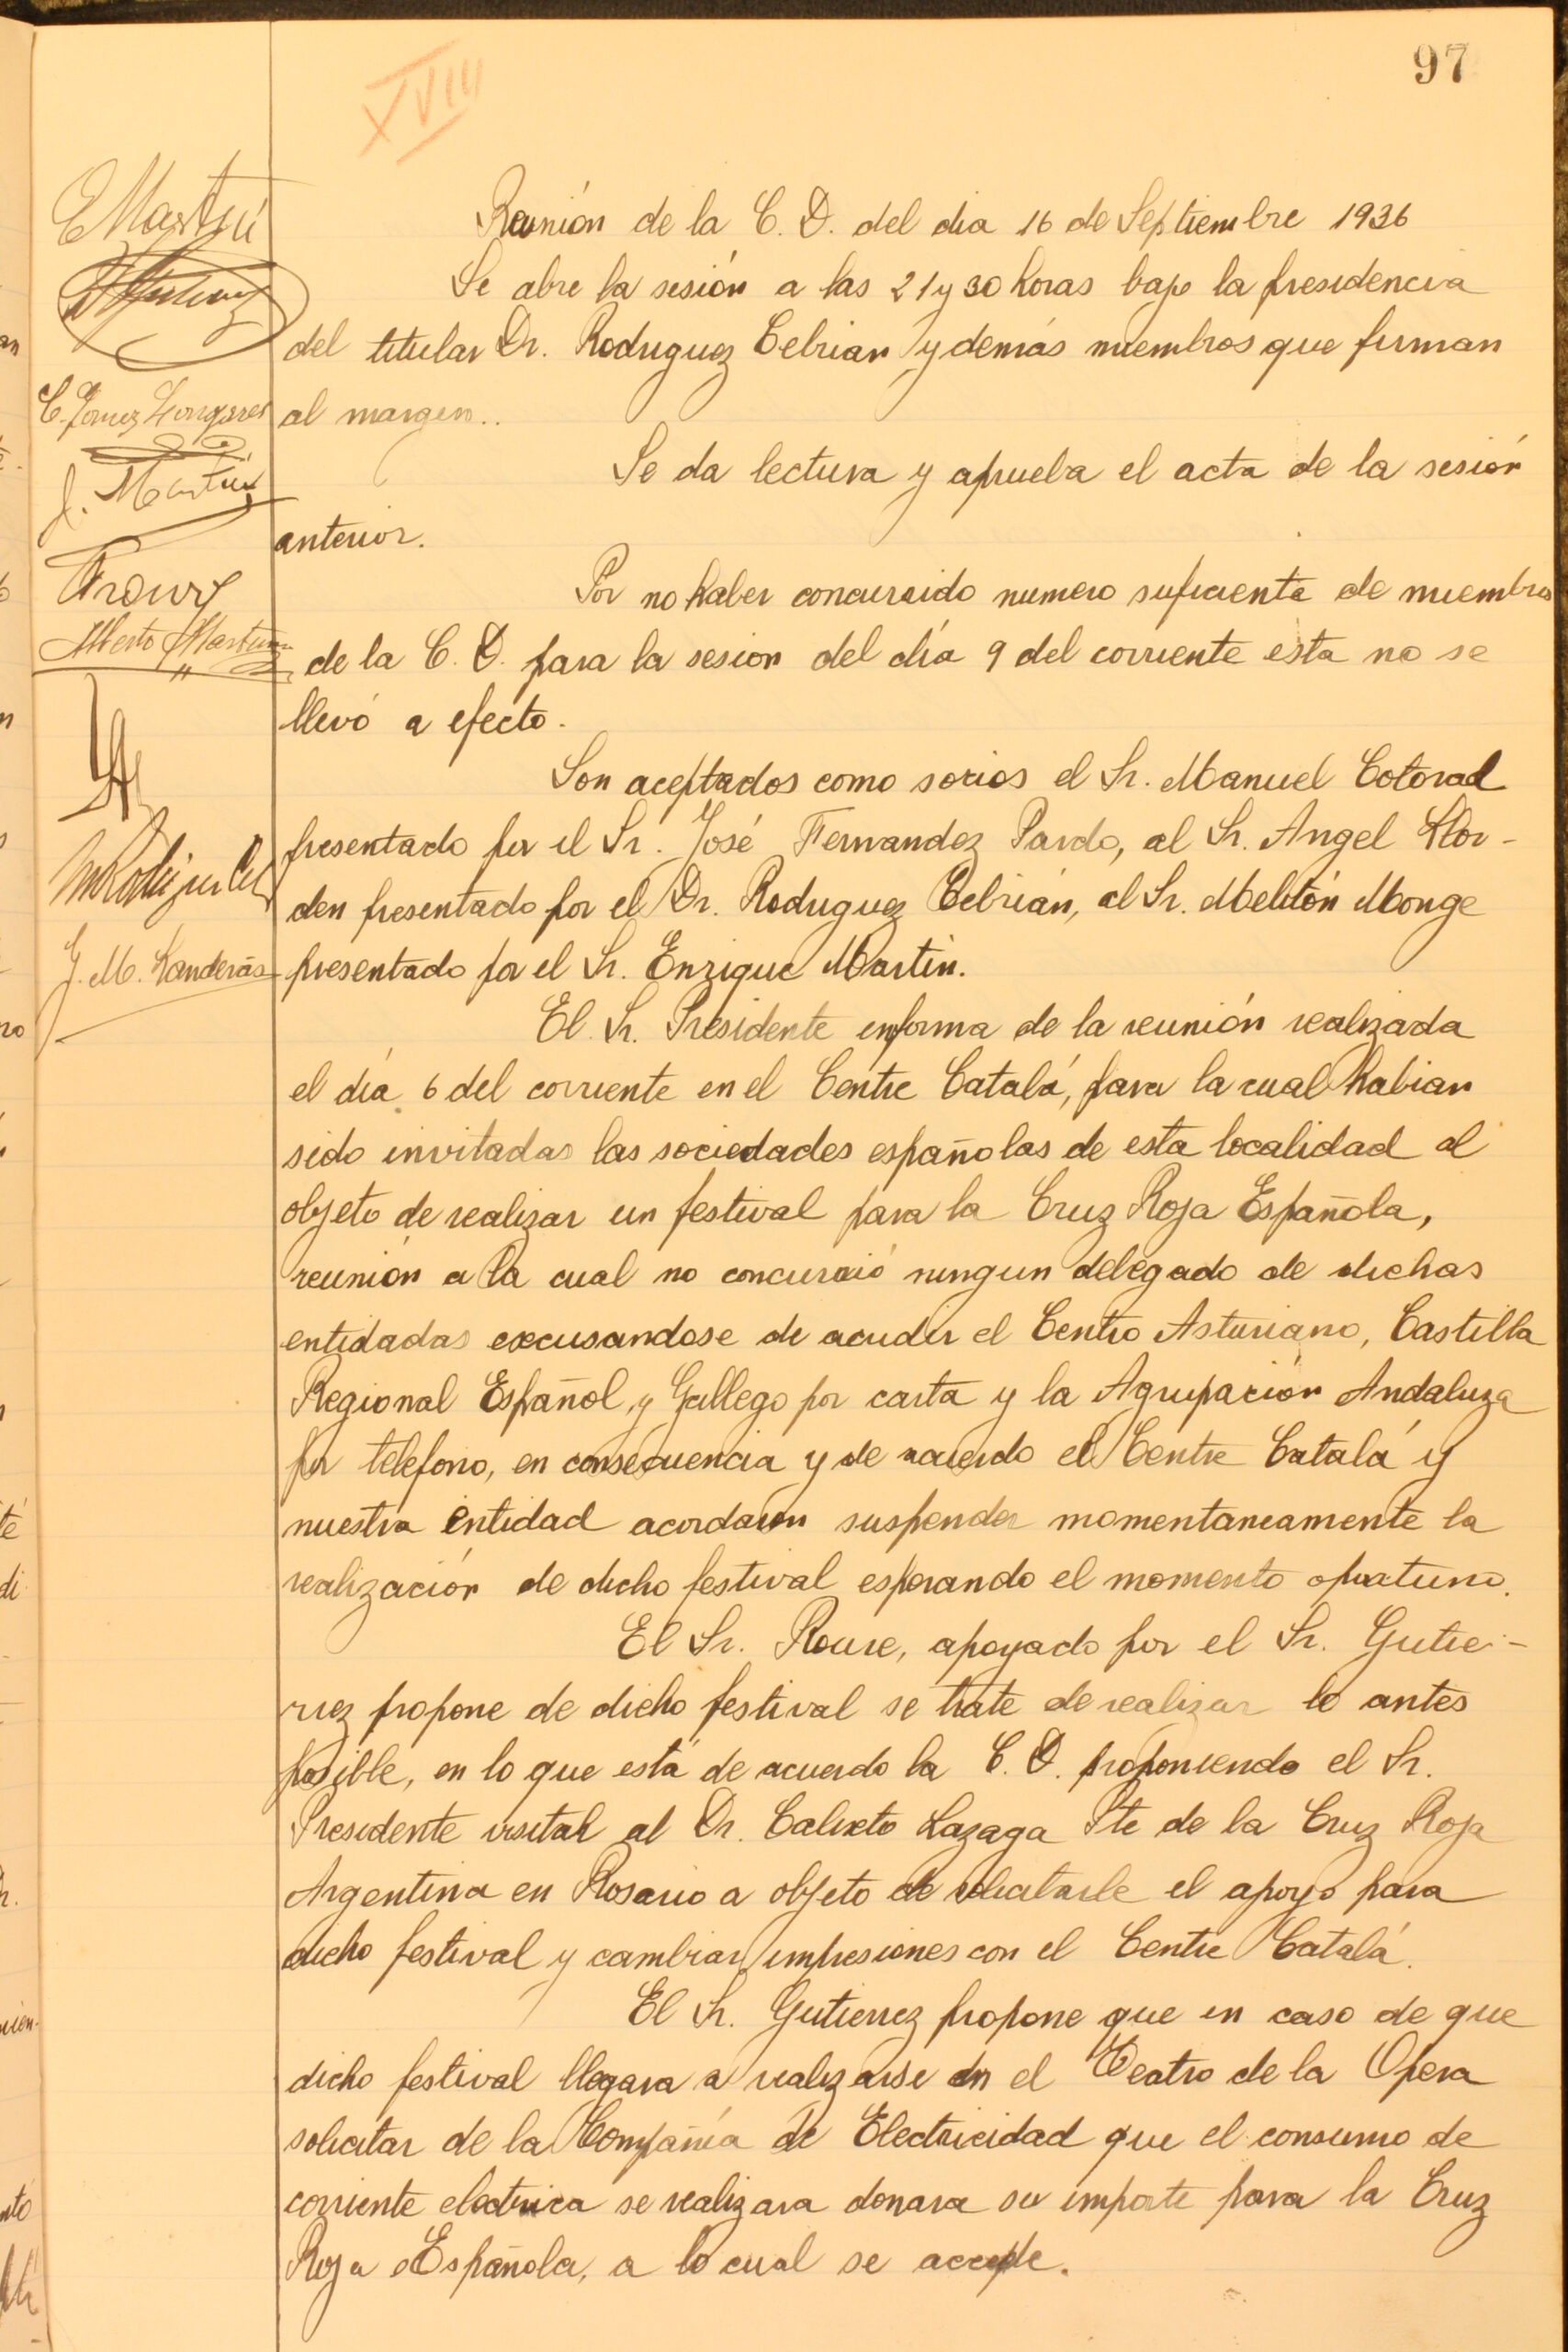 97
XVIII
EMartin
C. Gomez Longares
J. Martin
Alberto Martinez
J. M. Landeras
Reunión de la C. D. del dia 16 de Septiembre 1936
Se abre la sesión a las 21 y 30 horas bajo la presidencia
del titular Dr. Rodriguez Cebrian y demás miembros que firman
al margen..
Se da lectura y aprueba el acta de la sesión
anterior.
Por no haber concurrido numero suficiente de miembros
de la C. D. para la sesion del día 9 del corriente esta no se
llevó a efecto.
Son aceptados como socios el Sr. Manuel Cotorad
presentado por el Sr. José Fernandez Pardo, al Sr. Angel Llor-
den presentado por el Dr. Rodriguez Cebrián, al Sr. Melitón Monge
presentado por el Sr. Enrique Martin.
El Sr. Presidente informa de la reunión realizada
el día 6 del corriente en el Centre Catalá, para la cual habian
sido invitadas las sociedades españolas de esta localidad al
objeto de realizar un festival para la Cruz Roja Española,
reunión a la cual no concurrió ningun delegado de dichas
entidadas excusandose de acudir el Centro Asturiano, Castilla
Regional Español, y Gallego por carta y la Agrupación Andaluza
por telefono, en consecuencia y de acuerdo el Centre Catalá y
nuestra entidad acordaron suspender momentaneamente la
realización de dicho festival esperando el momento oportuno.
El Sr. Roure, apoyado por el Sr. Gutie-
rrez propone de dicho festival se trate de realizar lo antes
posible, en lo que está de acuerdo la C. D. proponiendo el Sr.
Presidente visitar al Dr. Calixto Lazaga Pte de la Cruz Roja
Argentina en Rosario a objeto de solicitarle el apoyo para
dicho festival y cambiar impresiones con el Centre Catalá.
El Sr. Gutierrez propone que en caso de que
dicho festival llegara a realizarse en el Teatro de la Opera
solicitar de la Compañía de Electricidad que el consumo de
corriente electrica se realizara donara su importe para la Cruz
Roja Española, a lo cual se accede.